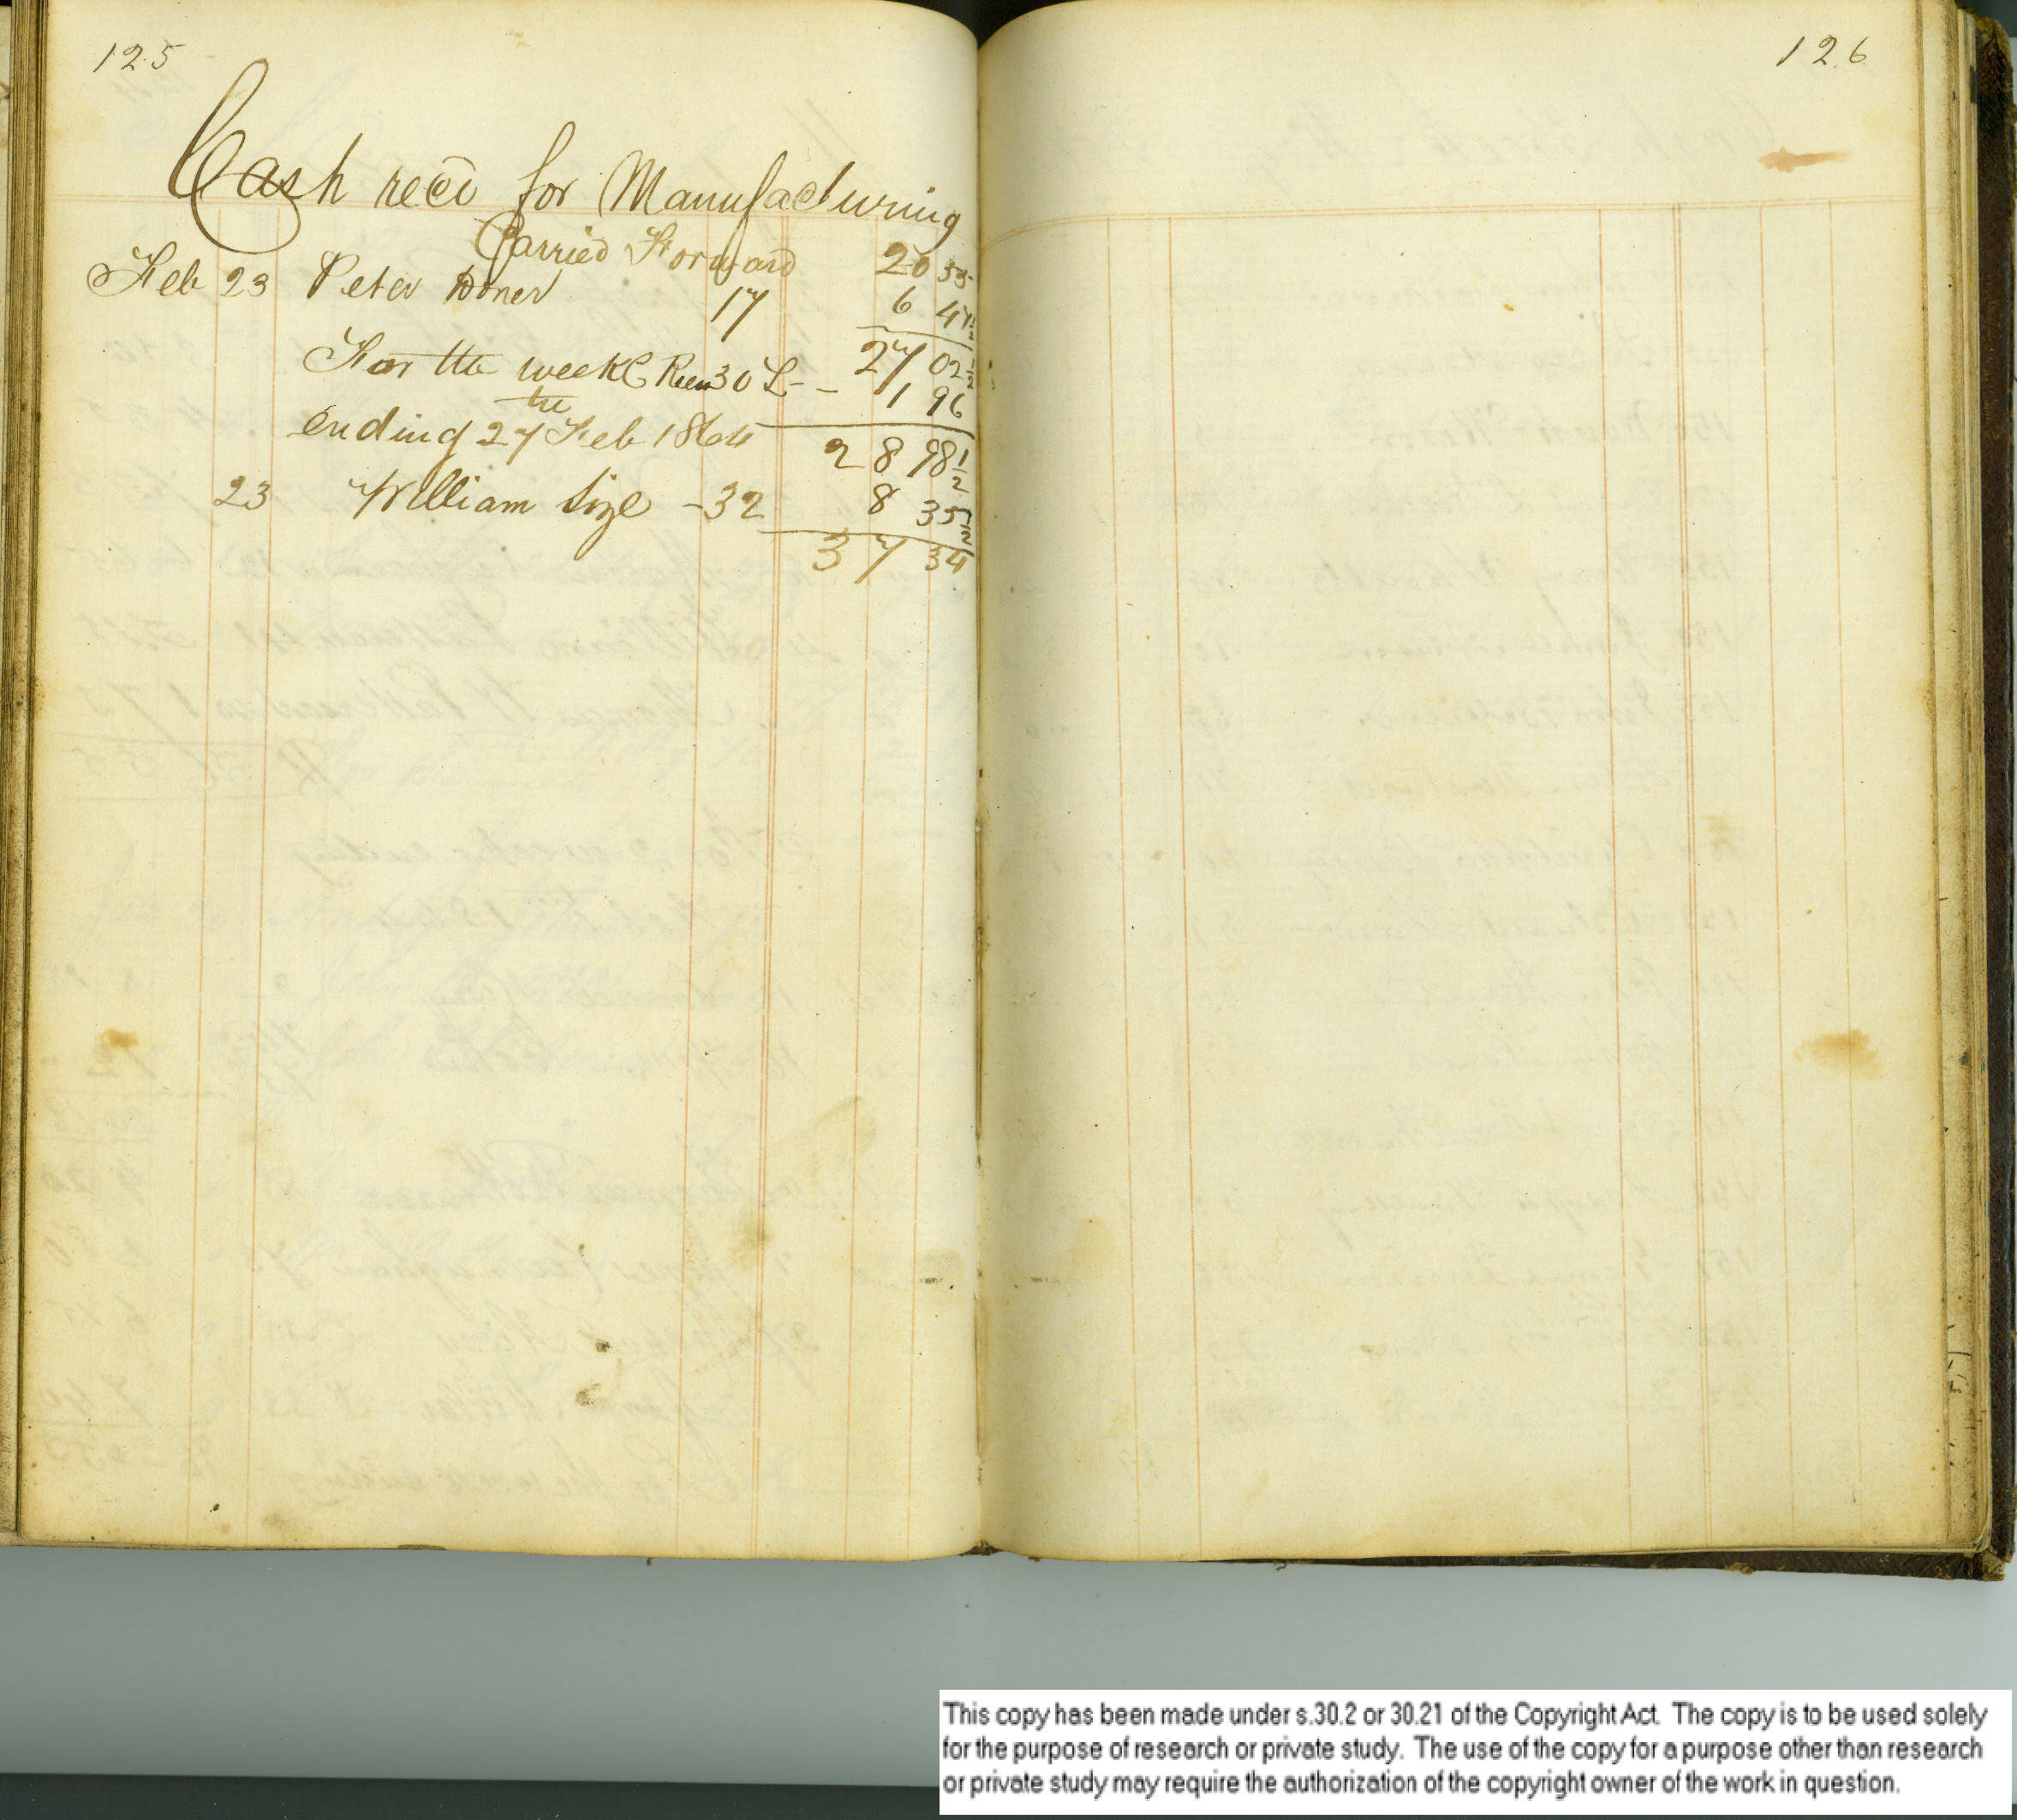 125
Cash recd for Manufacturing
Carried Forward 20 55
Feb 23 Peter Doner 17 6 47½
27 02½
For the week C 30 L - - 1 96
ending 27 the Feb 1864
28 98½
23 William Sizl - 32 8 35½
37 34
126
This copy has been made under s.30.2 or 30.21 of the Copyright Act. The copy is to be used solely
for the purpose of research or private study. The use of the copy for a purpose other than research
or private study may require the authorization of the copyright owner of the work in question.